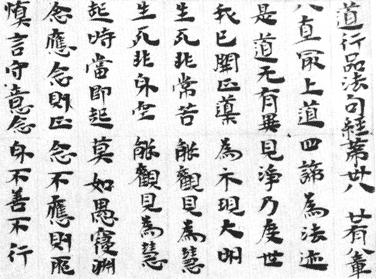 道行品法句經苐卅八 廿有八章
八直冣上道 四諦為法迹
是道无有異 見淨乃度世
我已開正藥 為尒現大明
生死非常苦 能觀見為慧
生死非身空 能觀見為慧
起時當即起 莫如愚寢淵
念應念則正 念不應則邪
慎言守意念 身不善不行